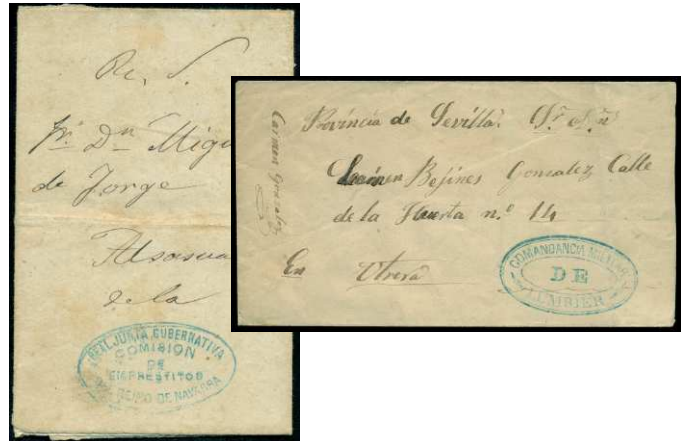 Rl. S.
Sr. Dn Migu
de Jorge
Alsasua
de la
REAL JUNTA GUBERNATIVA
COMISION
DE
EMPRESTITOS
REINO DE NAVARRA
Carmen Gonzalez
Provincia de Sevilla. Sr
Carmen Bejines Gonzalez Calle
de la Huerta n.º 14
En Utrera
COMANDANCIA MILITAR
DE
LUMBIER